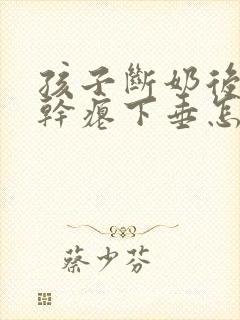 孩子斷奶後
幹癟下垂怎
蔡少芬